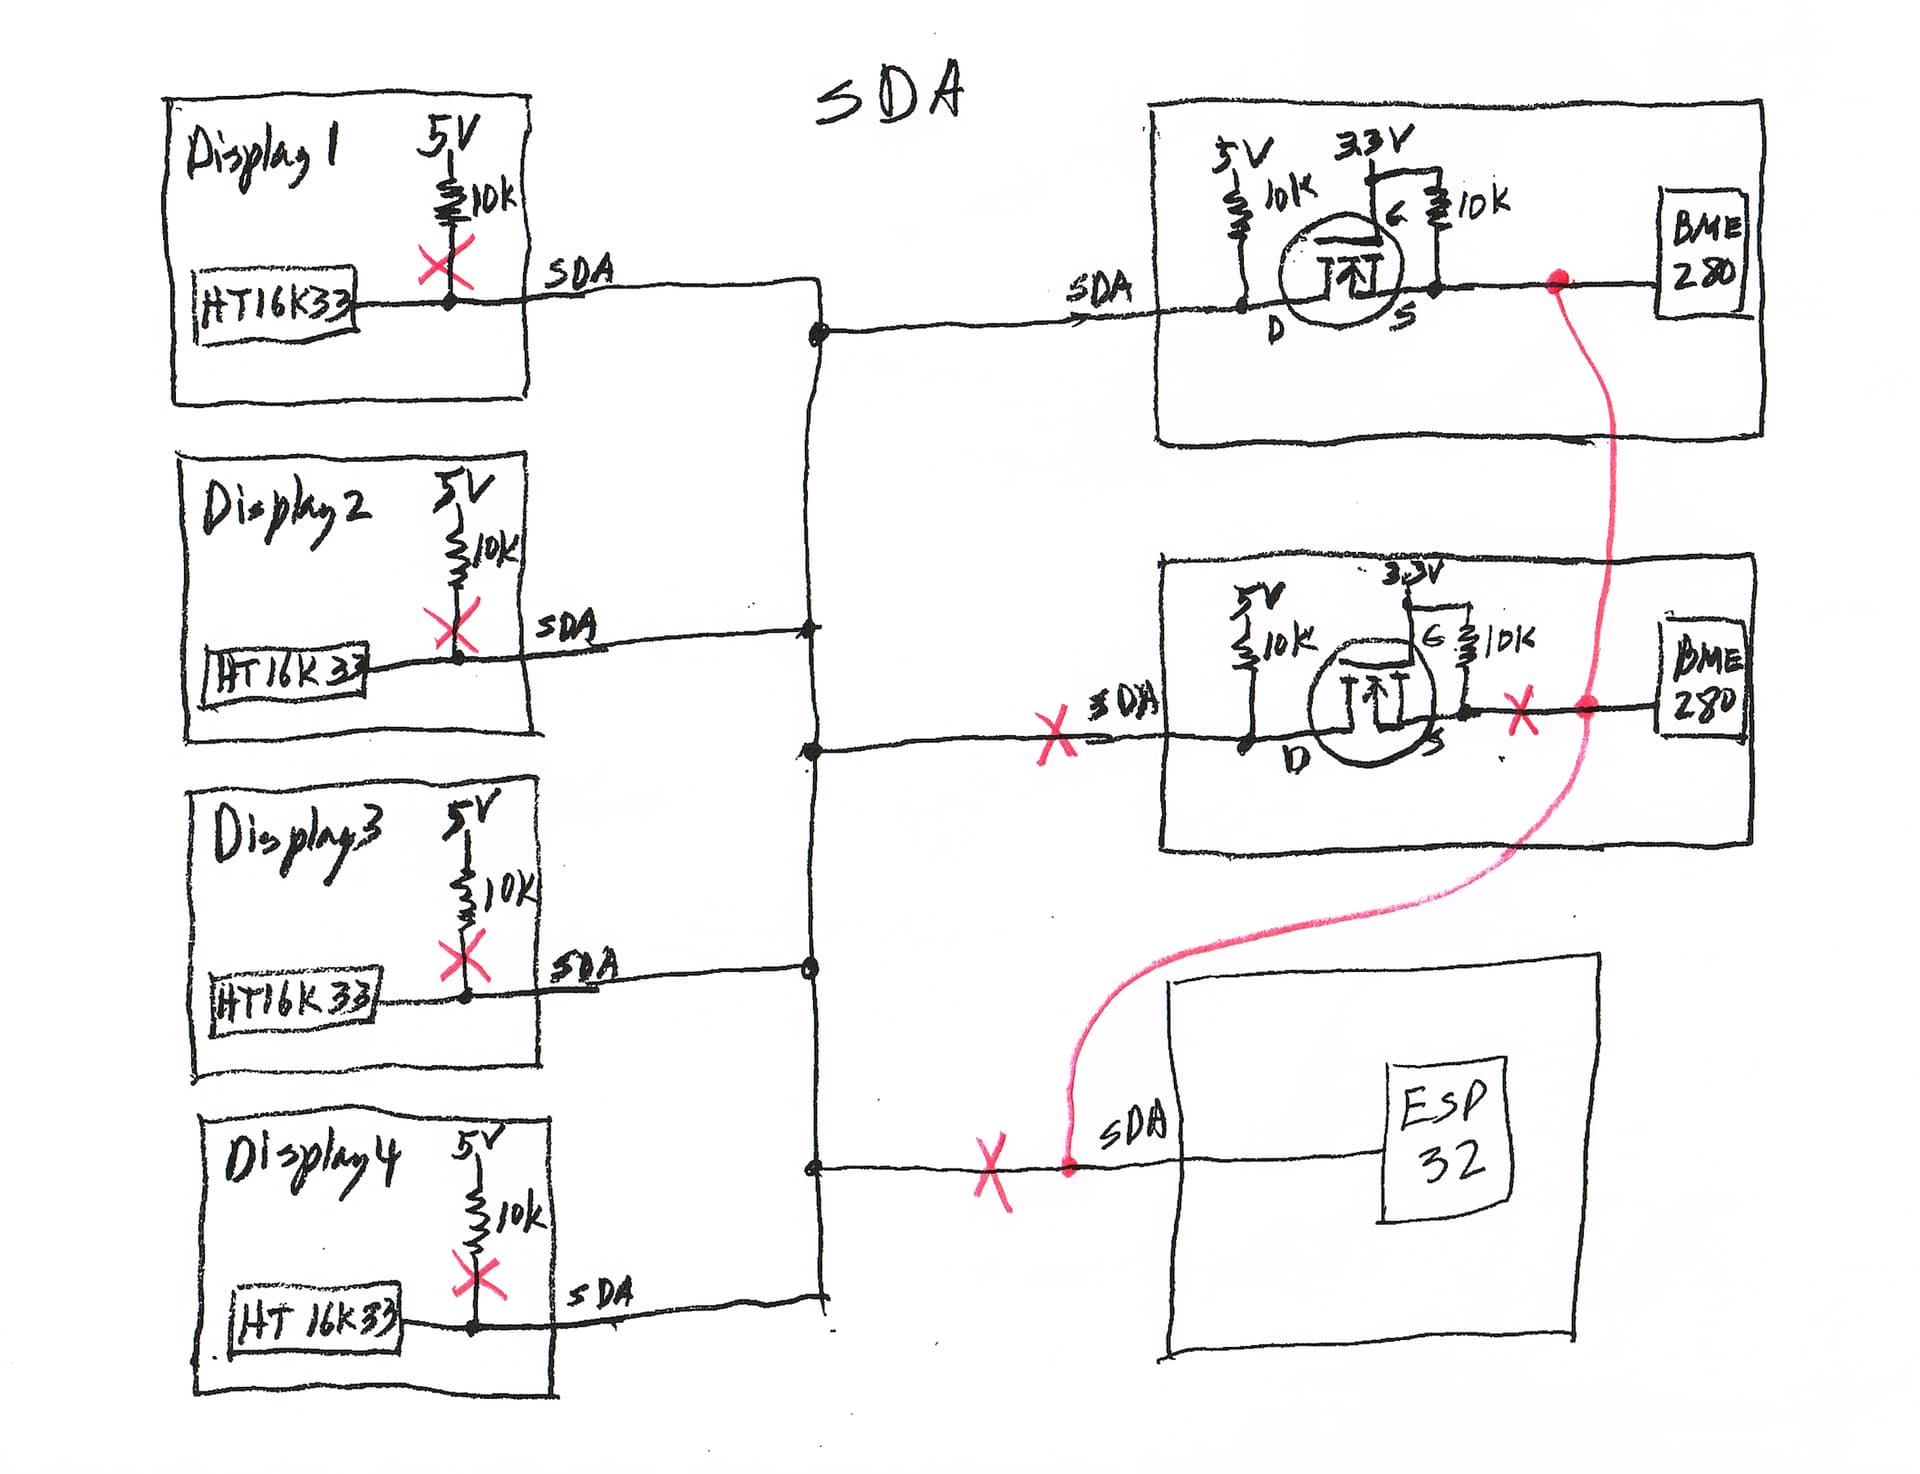 SDA
Display 1
5V
10K
HT16K33
SDA
Display 2
5V
10K
HT16K33
SDA
Display 3
5V
10K
HT16K33
SDA
Display 4
5V
10K
HT16K33
SDA
SDA
5V
10K
3.3V
G
10K
D
S
BME
280
SDA
5V
10K
3.3V
G
10K
D
S
BME
280
SDA
ESP
32